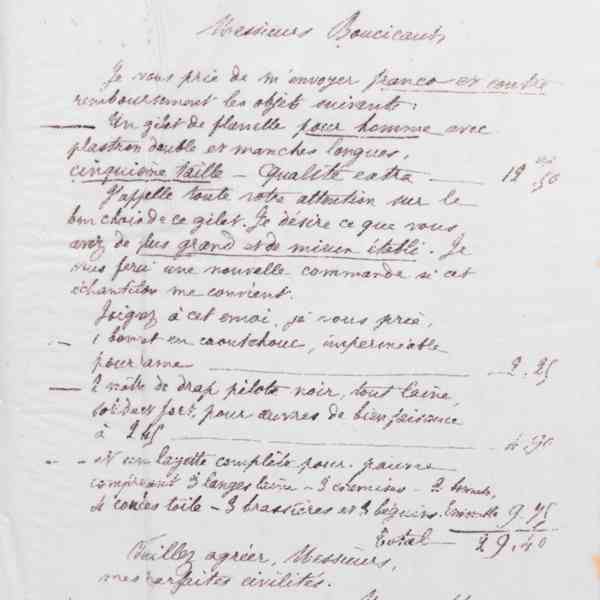 Messieurs Boucicaut,
Je vous prie de m'envoyer franco et contre
remboursement les objet suivants:
Un gilet de flanelle pour homme avec
plastron double et manches longues,
cinquième taille — Qualité extra — 12.50
J'appelle toute votre attention sur le
bon choix de ce gilet. Je désire ce que vous
avez de plus grand et de mieux établi. Je
vous ferai une nouvelle commande si cet
échantillon me convient.
Joignez à cet envoi, je vous prie,
1 bonnet en caoutchouc, imperméable
pour — 2.25
2 mètre de drap pilote noir, tout laine,
fort, pour œuvres de bienfaisance
à 2.45 — 4.90
et un layette complète pour pauvre
comprenant 3 langes laine — 3 chemises — 2 bonnets,
4 couches toile — 3 brassières et 3 béguins. Ensemble 9.75
Total — 29.40
Veuillez agréer, Messieurs,
mes parfaites civilités.